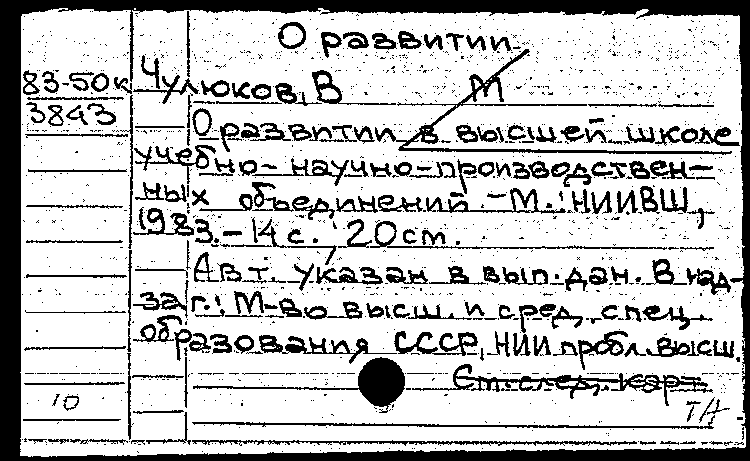 О развитии
83-50к
3843
Чулюков, В М
О развитии в высшей школе
учебно-научно-производствен-
ных объединений. - М.: НИИВШ,
1983. - 14 с. ; 20 см.
Авт. указан в вып. дан. В над-
заг.: М-во высш. и сред. спец.
образования СССР, НИИ пробл. высш.
См. след. карт.
10